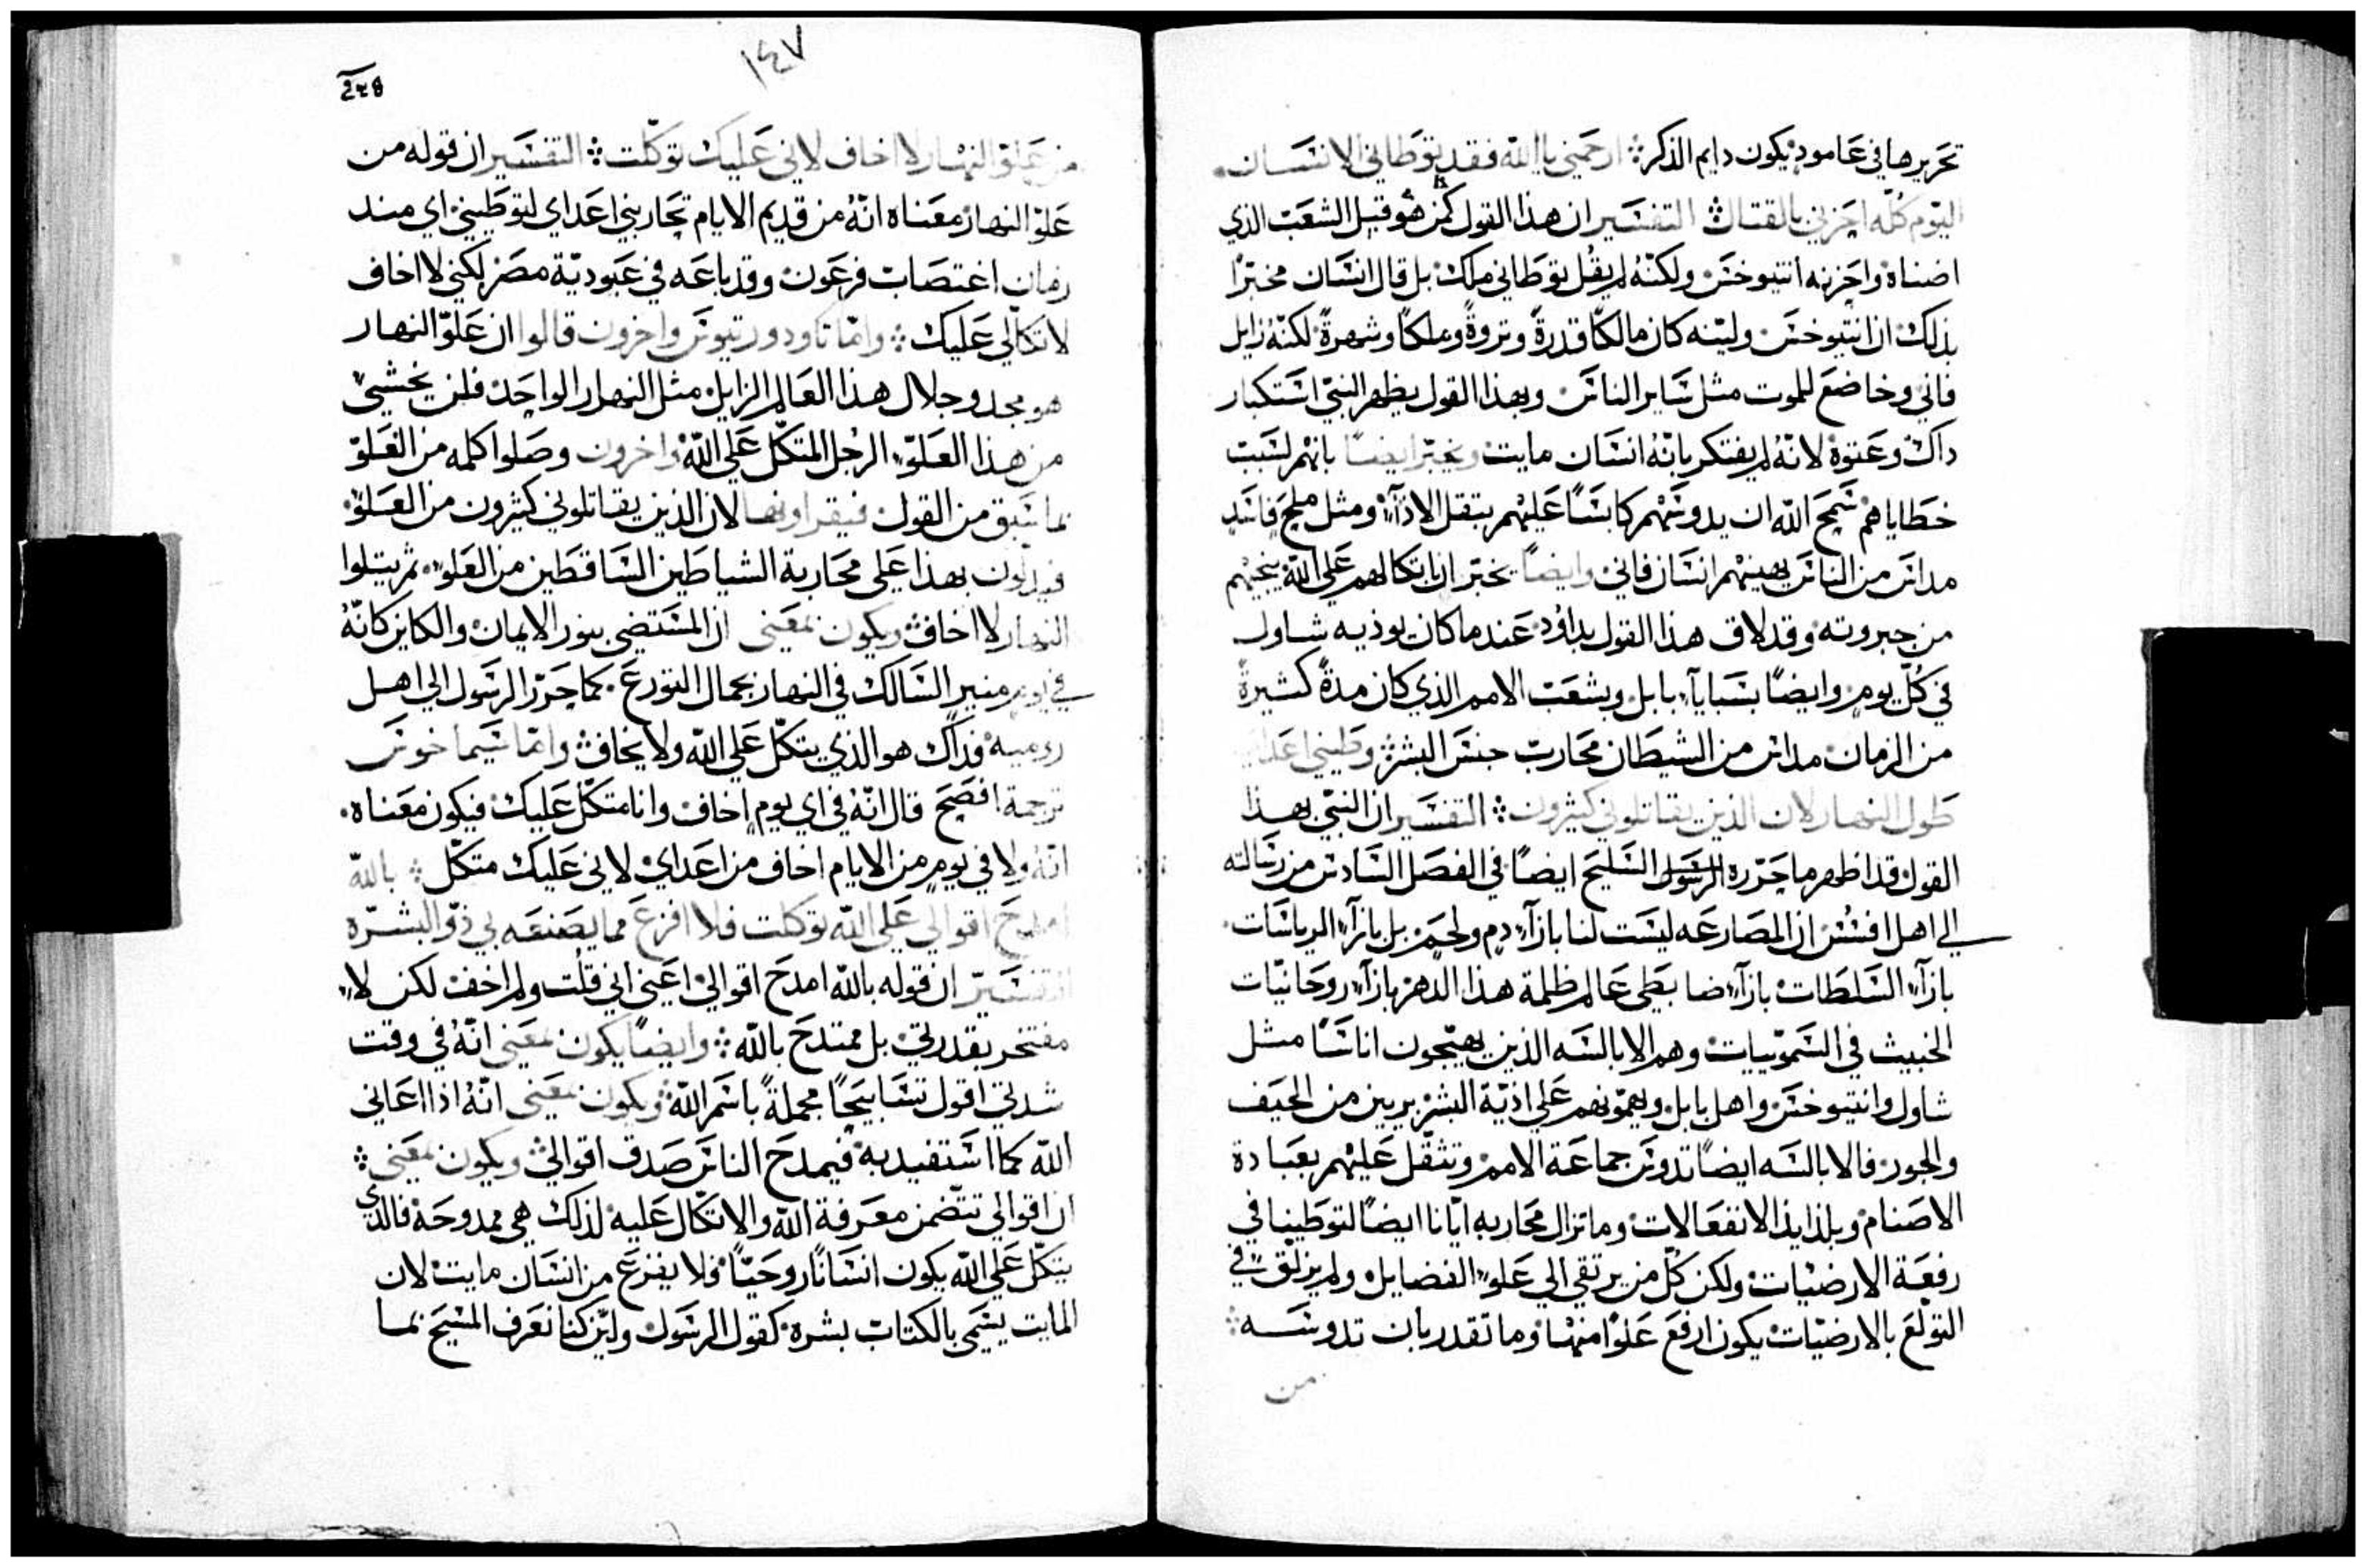 تحريرها في عامود يكون دايم الذكر ۞ ارحمني يا الله فقد توطاني الانسان.
اليوم كله احزنني بالقتال ۞ التفسير ان هذا القول كمن هو قبل الشعب الذي
اضناه واحزنه انتيوخس ولكنه لم يقل توطاني ملك بل قال انسان مخبرًا
بذلك ان انتيوخس وليئنه كان مالكًا قدرةً وثروةً وملكًا وشهرةً لكنه زايل
فاني وخاضع للموت مثل ساير الناس وبهذا القول يظهر النبي استكبار
داك وعتوه لانه لم يفتكر بانه انسان مايت ويخبر ايضًا بانهم لسبب
خطاياهم سمح الله ان يدوسهم كابسًا عليهم بثقل الادآء ومثل ملح فاسد
مداس من الناس يهينهم انسان فاني وايضًا يخبر ان باتكالهم على الله ينجيهم
من جبروته وقد لاق هذا القول بداود عندما كان يوذيه شاول
في كل يوم وايضًا بسبايآء بابل وبشعب الامم الذي كان مدةً كثيرةً
من الزمان مداس من الشيطان محارب جنس البشر وطيني اعداي
طول النهار لان الذين يقاتلوني كثيرون ۞ التفسير ان النبي بهذا
القول قد اظهر ما حرره الرسول السليح ايضًا في الفصل السادس من رسالته
الى اهل افسس ان المصارعه ليست لنا بازآء دم ولحم بل بازآء الرياسات.
بازآء السلطات بازآء ضابطي عالم ظلمة هذا الدهر بازآء روحانيات
الخبيث في السمويات وهم الابالسه الذين يهيجون اناسًا مثل
شاول وانتيوخس واهل بابل ويهمونهم على اذية البشر بريين من الحيف
والجور فالابالسه ايضًا تدوس جماعة الامم وتثقل عليهم بعبادة
الاصنام وبلذايذ الانفعالات وما تزال محاربه ايانا ايضًا لتوطينا في
رفعة الارضيات ولكن كل من يرتقي الى علو الفضايل ولم يزلق في
التولع بالارضيات يكون ارفع علوًا منها وما تقدر بان تدوسه ۞
من
١٤٧
من علو النهار لا اخاف لاني عليك توكلت ۞ التفسير ان قوله من
علو النهار معناه انه من قديم الايام تحاربني اعداي لتوطيني اي منذ
زمان اغتصاب فرعون وقد باعه في عبودية مصر لكني لا اخاف
لاتكالي عليك ۞ واما تاودوريتوس واخرون قالوا ان علو النهار
هو مجد وجلال هذا العالم الزايل مثل النهار الواحد فلن يخشى
من هذا العلو الرجل المتكل على الله واخرون وصلوا كلمه من العلو
بما سبق من القول فيقراونها لان الذين يقاتلوني كثيرون من العلو.
فيدلون بهذا على محاربة الشياطين الساقطين من العلو. ثم يتلوا
النهار لا اخاف ويكون بمعنى ان المستضي بنور الايمان والكاين كانه
في يوم منير السالك في النهار بجمال التورع. كما حرر الرسول الى اهل
روميه فداك هو الذي يتكل على الله ولا يخاف واما سيماخوس
ترجمة افصح قال انه في اي يوم اخاف وانا متكل عليك فيكون معناه.
انه ولا في يوم من الايام اخاف من اعداي لاني عليك متكل ۞ بالله
امدح اقوالي على الله توكلت فلا افزع مما يصنعه بي ذو البشره
التفسير ان قوله بالله امدح اقوالي اعني اني قلت ولم اخف لكن لا
مفتخر بقدرتي بل ممتدح بالله ۞ وايضًا يكون بمعنى انه في وقت
شدتي اقول تسابيحًا مجملةً باسم الله ويكون بمعنى انه اذا اعاني
الله كما استفيد به فيمدح الناس صدق اقوالي ويكون بمعنى ۞
ان اقوالي تتضمن معرفة الله والاتكال عليه لذلك هي ممدوحة فالذي
يتكل على الله يكون انسانًا روحيًا فلا يفزع من انسان مايت لان
المايت يسمى بالكتاب بشره كقول الرسول ولين كنا نعرف المسيح بما